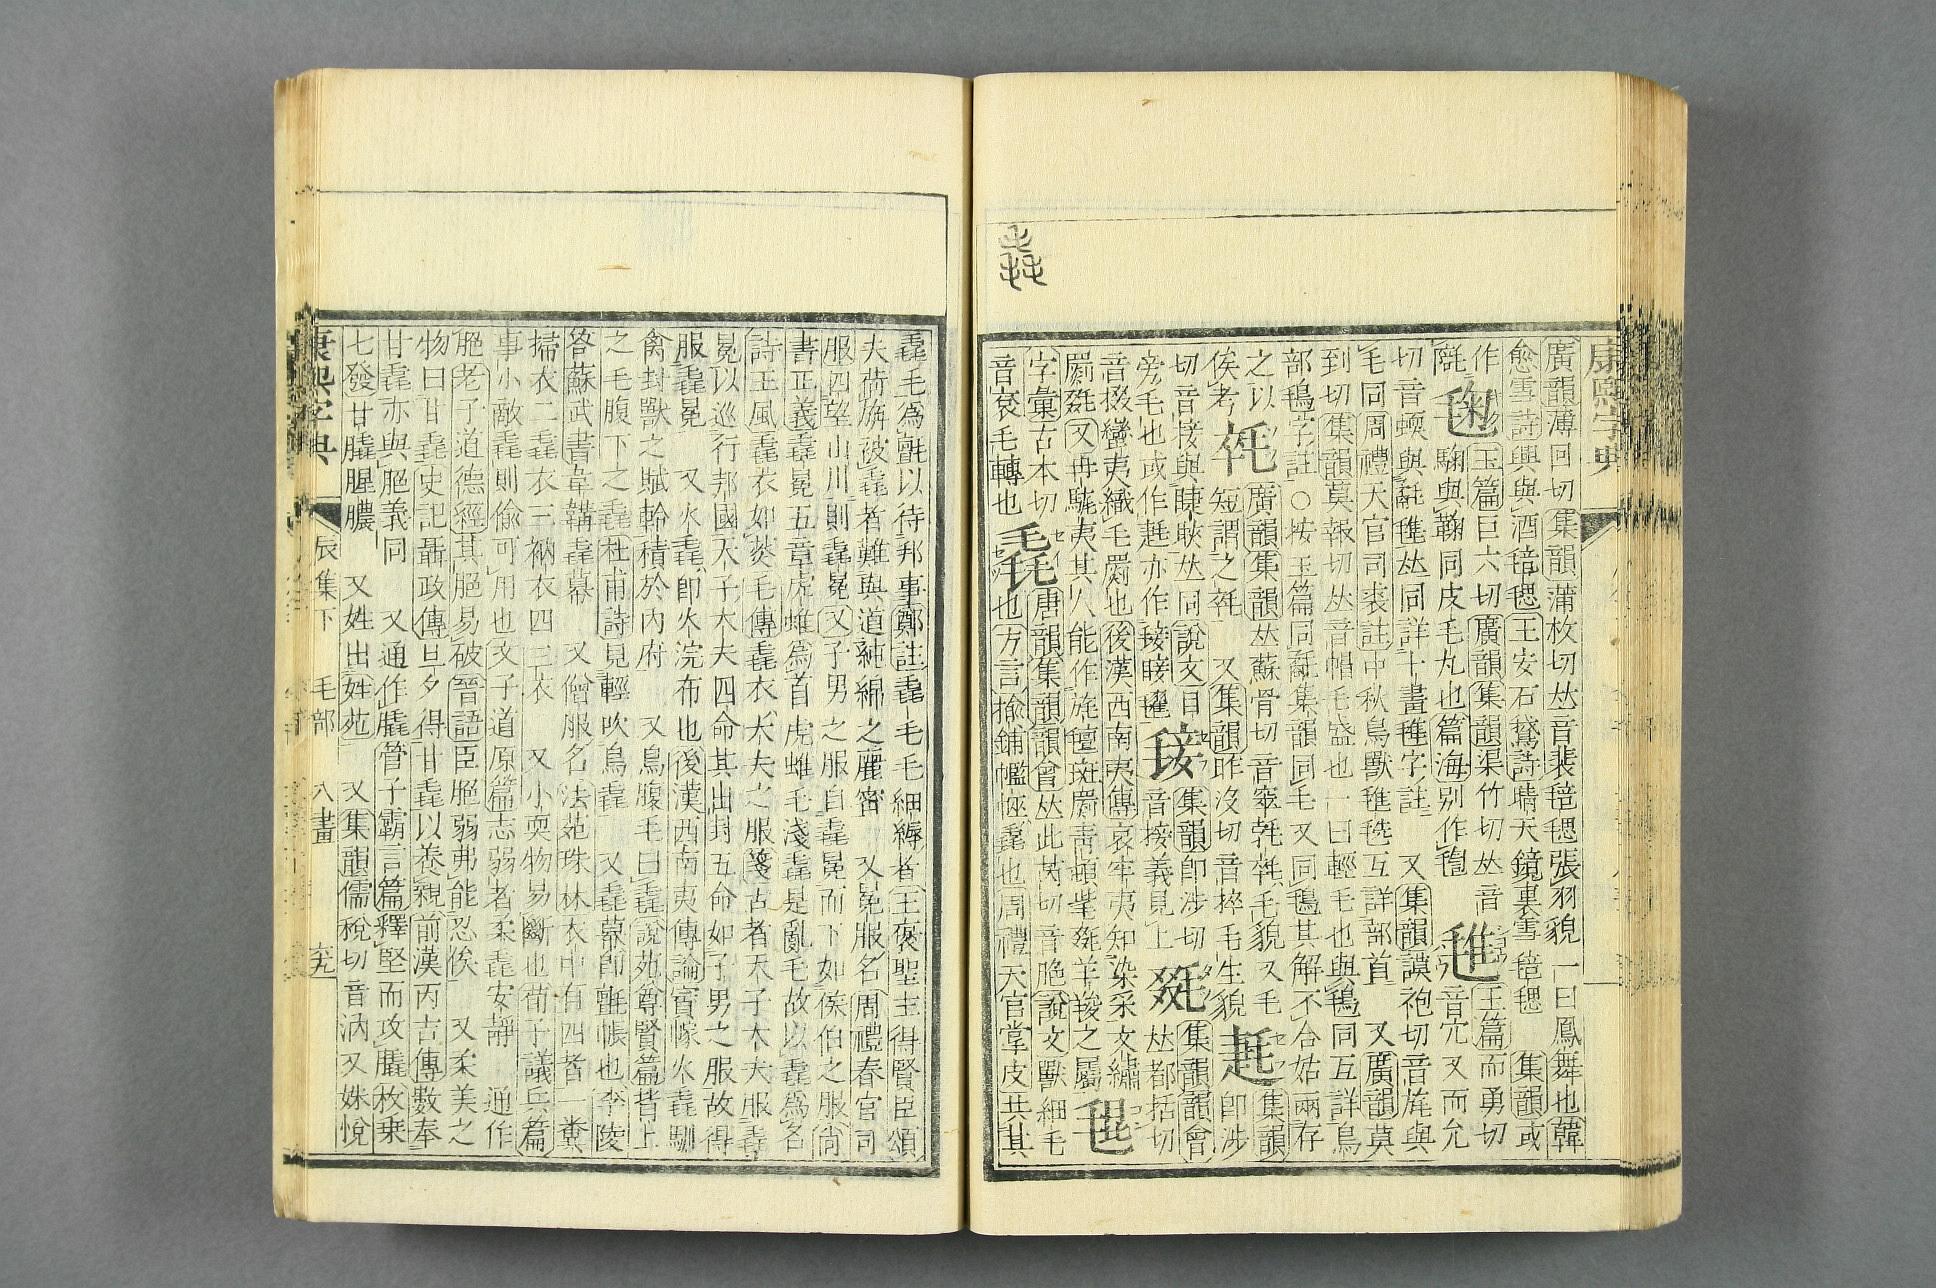 康熙字典
廣韻薄回切集韻蒲枚切𠀤音裴毰毸張羽貌一曰鳳舞也韓
愈雪詩興與酒毰毸王安石鵞詩晴天鏡裏雪毰毸 集韻或
作 玉篇巨六切廣韻集韻渠竹切𠀤音
與鞠同皮毛丸也篇海別作 玉篇而勇切 音宂又而允
切音蝡與 𠀤同詳十畫 字註 又集韻謨袍切音旄與
毛同周禮天官司裘註中秋鳥獸毨毨互詳部首 又廣韻莫
到切集韻莫報切𠀤音帽毛盛也一曰輕毛也與 同互詳鳥
部 字註○按玉篇同 集韻同毛又同 其解不合姑兩存
之以俟考 廣韻集韻𠀤蘇骨切音窣 毛貌又毛
短謂之 又集韻昨沒切音捽毛生貌 集韻卽涉
切音接與睫䀹𠀤同說文目旁毛也或作 亦作
音接義見上 集韻韻會𠀤都括切
音掇蠻夷織毛罽也後漢西南夷傳哀牢夷知染采文繡
罽 又冉駹夷其人能作旄氈斑罽靑頓 羊羧之屬
字彙古本切音袞毛轉也 唐韻集韻韻會𠀤此芮切音脆說文獸細毛
也方言揄鋪 毳也周禮天官掌皮共其
毳毛爲氈以待邦事鄭註毳毛毛細縟者王褒聖主得賢臣頌
夫荷旃被毳者難與道純綿之麗密 又冕服名周禮春官司
服四望山川則毳冕又子男之服自毳冕而下如侯伯之服尚
書正義毳冕五章虎蜼爲首虎蜼毛淺毳是亂毛故以毳爲名
詩王風毳衣如菼毛傳毳衣大夫之服箋古者天子大夫服毳
冕以巡行邦國天子大夫四命其出封五命如子男之服故得
服毳冕 又火毳卽火浣布也後漢西南夷傳論賨幏火毳馴
禽封獸之賦軨積於內府 又鳥腹毛曰毳說苑尊賢篇背上
之毛腹下之毳杜甫詩見輕吹鳥毳 又毳幕卽氈帳也李陵
答蘇武書韋韝毳幕 又僧服名法苑珠林衣中有四者一糞
掃衣二毳衣三衲衣四三衣 又小耎物易斷也荀子議兵篇
事小敵毳則偷可用也文子道原篇志弱者柔毳安靜 通作
脃老子道德經其脃易破晉語臣脃弱弗能忍俟 又柔美之
物曰甘毳史記聶政傳旦夕得甘毳以養親前漢丙吉傳數奉
甘毳亦與脃義同 又通作膬管子霸言篇釋堅而攻膬枚乘
七發甘膬腥膿 又姓出姓苑 又集韻儒稅切音汭又姝悅
康熙字典 辰集下 毛部 八畫